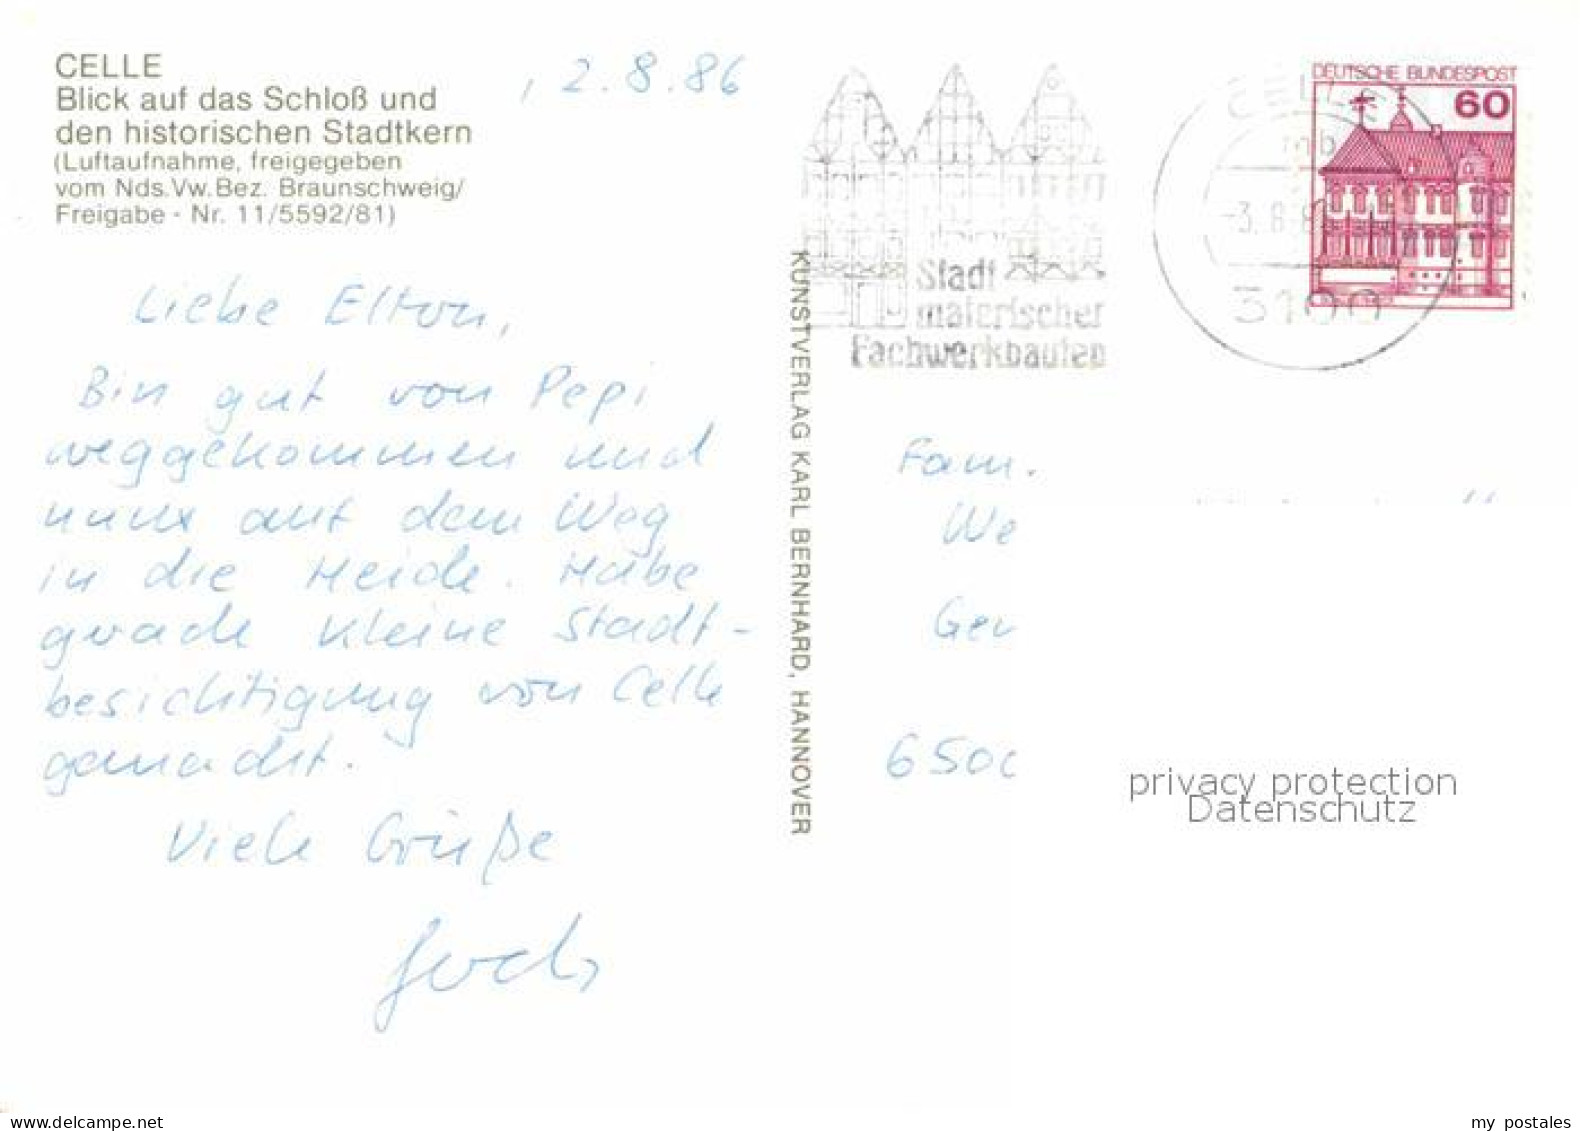 CELLE
Blick auf das Schloß und
den historischen Stadtkern
(Luftaufnahme, freigegeben
vom Nds.Vw.Bez. Braunschweig/
Freigabe - Nr. 11/5592/81)
, 2.8.86
Liebe Eltern,
Bin gut von Pepi
weggekommen und
nun auf dem Weg
in die Heide. Habe
grade kleine Stadt-
besichtigung von Celle
gemacht.
Viele Grüße
KUNSTVERLAG KARL BERNHARD, HANNOVER
Stadt
malerischer
Fachwerkbauten
CELLE
mb
-3.8.8
3100
DEUTSCHE BUNDESPOST
60
Fam.
We
Ger
6500
privacy protection
Datenschutz
www.delcampe.net
my postales